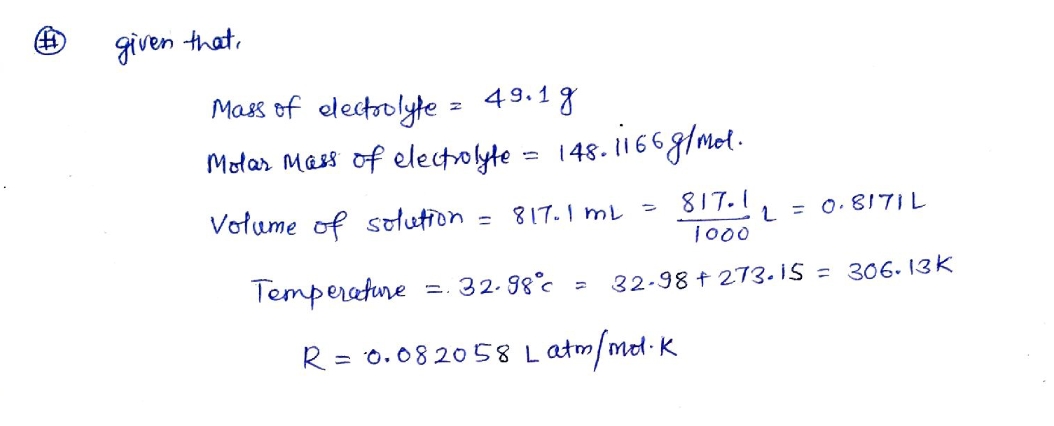 # given that,
Mass of electrolyte = 49.1 g
Molar Mass of electrolyte = 148.1166 g/mol.
Volume of solution = 817.1 mL = 817.1/1000 L = 0.8171 L
Temperature = 32.98°C = 32.98 + 273.15 = 306.13 K
R = 0.082058 L atm/mol.K